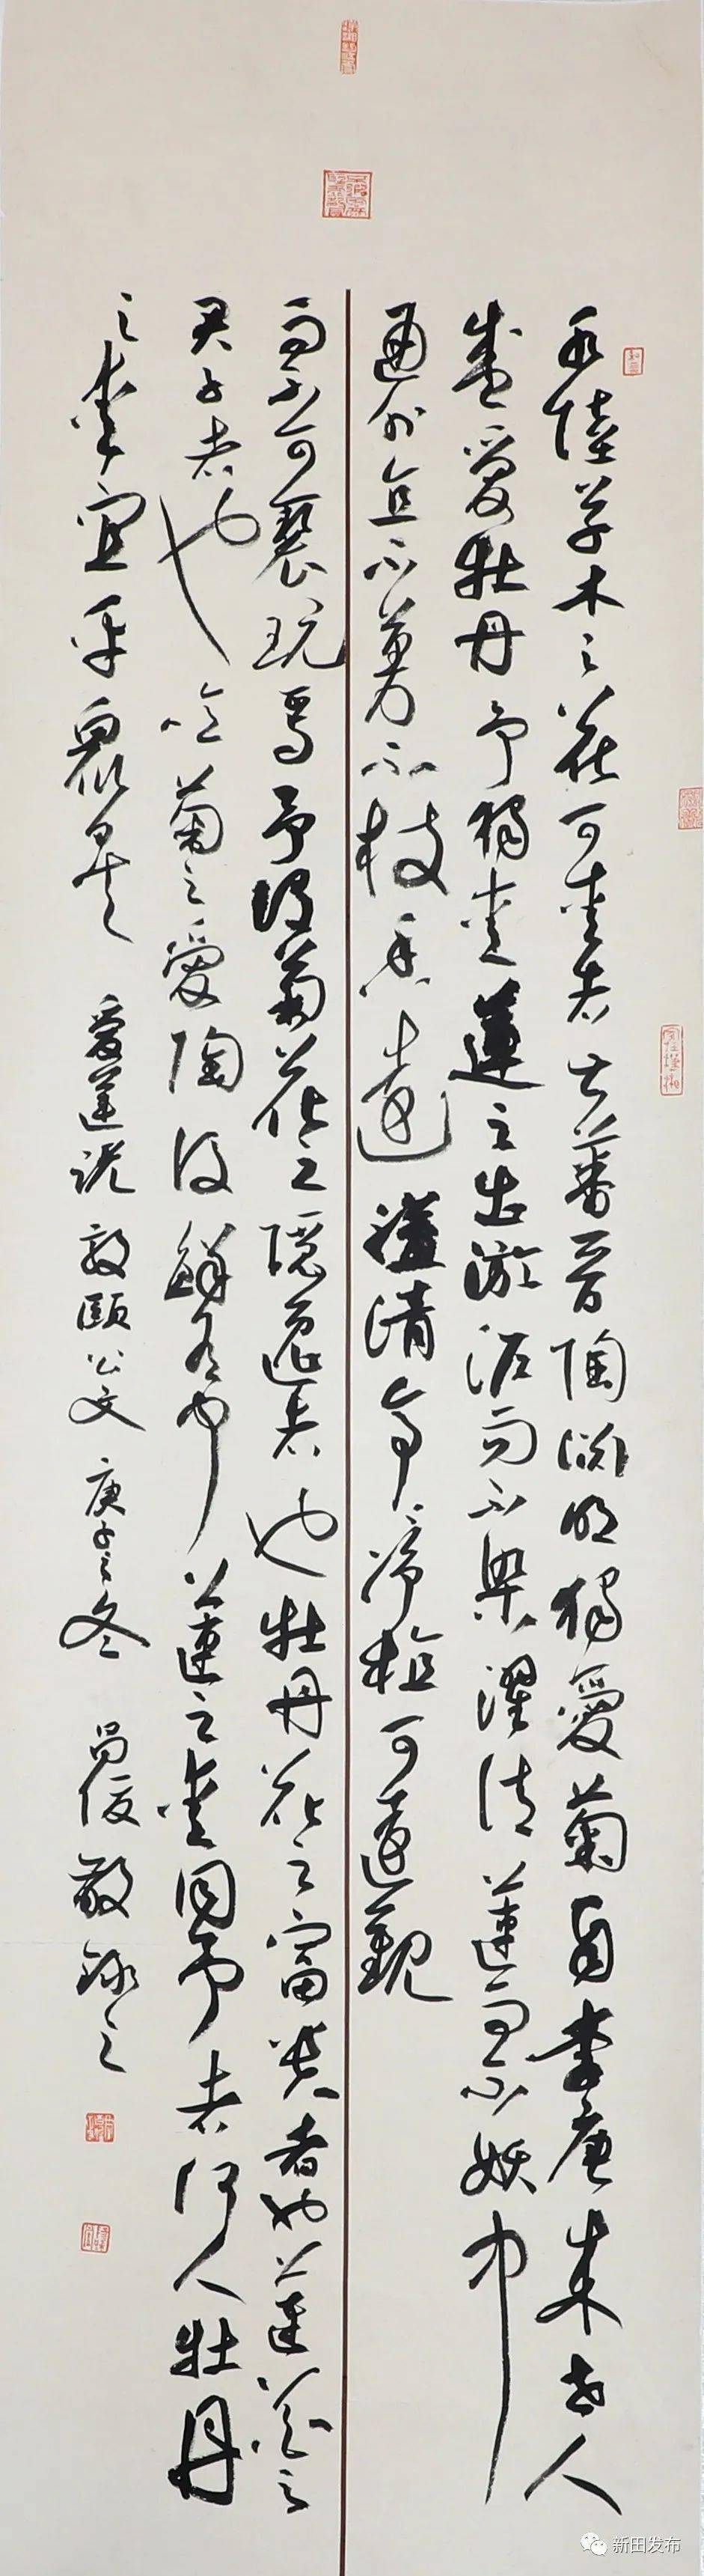 水陸草木之花可愛者甚蕃晉陶淵明獨愛菊自李唐來世人
盛愛牡丹予獨愛蓮之出淤泥而不染濯清蓮而不妖中
通外直不蔓不枝香遠溢清亭亭淨植可遠觀
而不可褻玩焉予謂菊花之隱逸者也牡丹花之富貴者也蓮花之
君子者也噫菊之愛陶後鮮有聞蓮之愛同予者何人牡丹
之愛宜乎眾矣 愛蓮說 敦頤公文 庚子之冬 敬錄之
新田发布